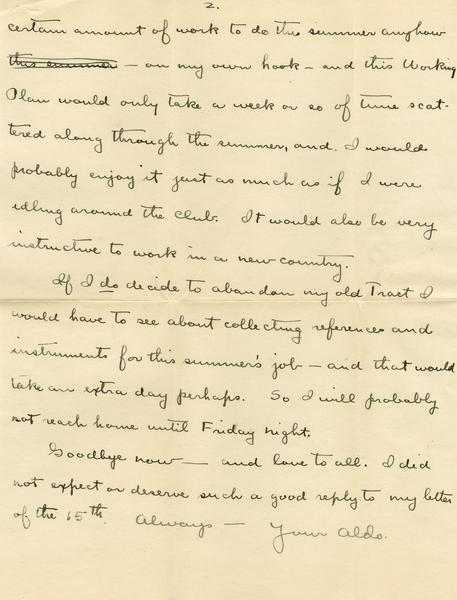 2.
certain amount of work to do this summer anyhow
this summer — on my own hook — and this Working
Plan would only take a week or so of time scat-
tered along through the summer, and I would
probably enjoy it just as much as if I were
idling around the club. It would also be very
instructive to work in a new country.
If I do decide to abandon my old Tract I
would have to see about collecting references and
instruments for this summer's job — and that would
take an extra day perhaps. So I will probably
not reach home until Friday night.
Goodbye now — and love to all. I did
not expect or deserve such a good reply to my letter
of the 15th. Always — Your Aldo.